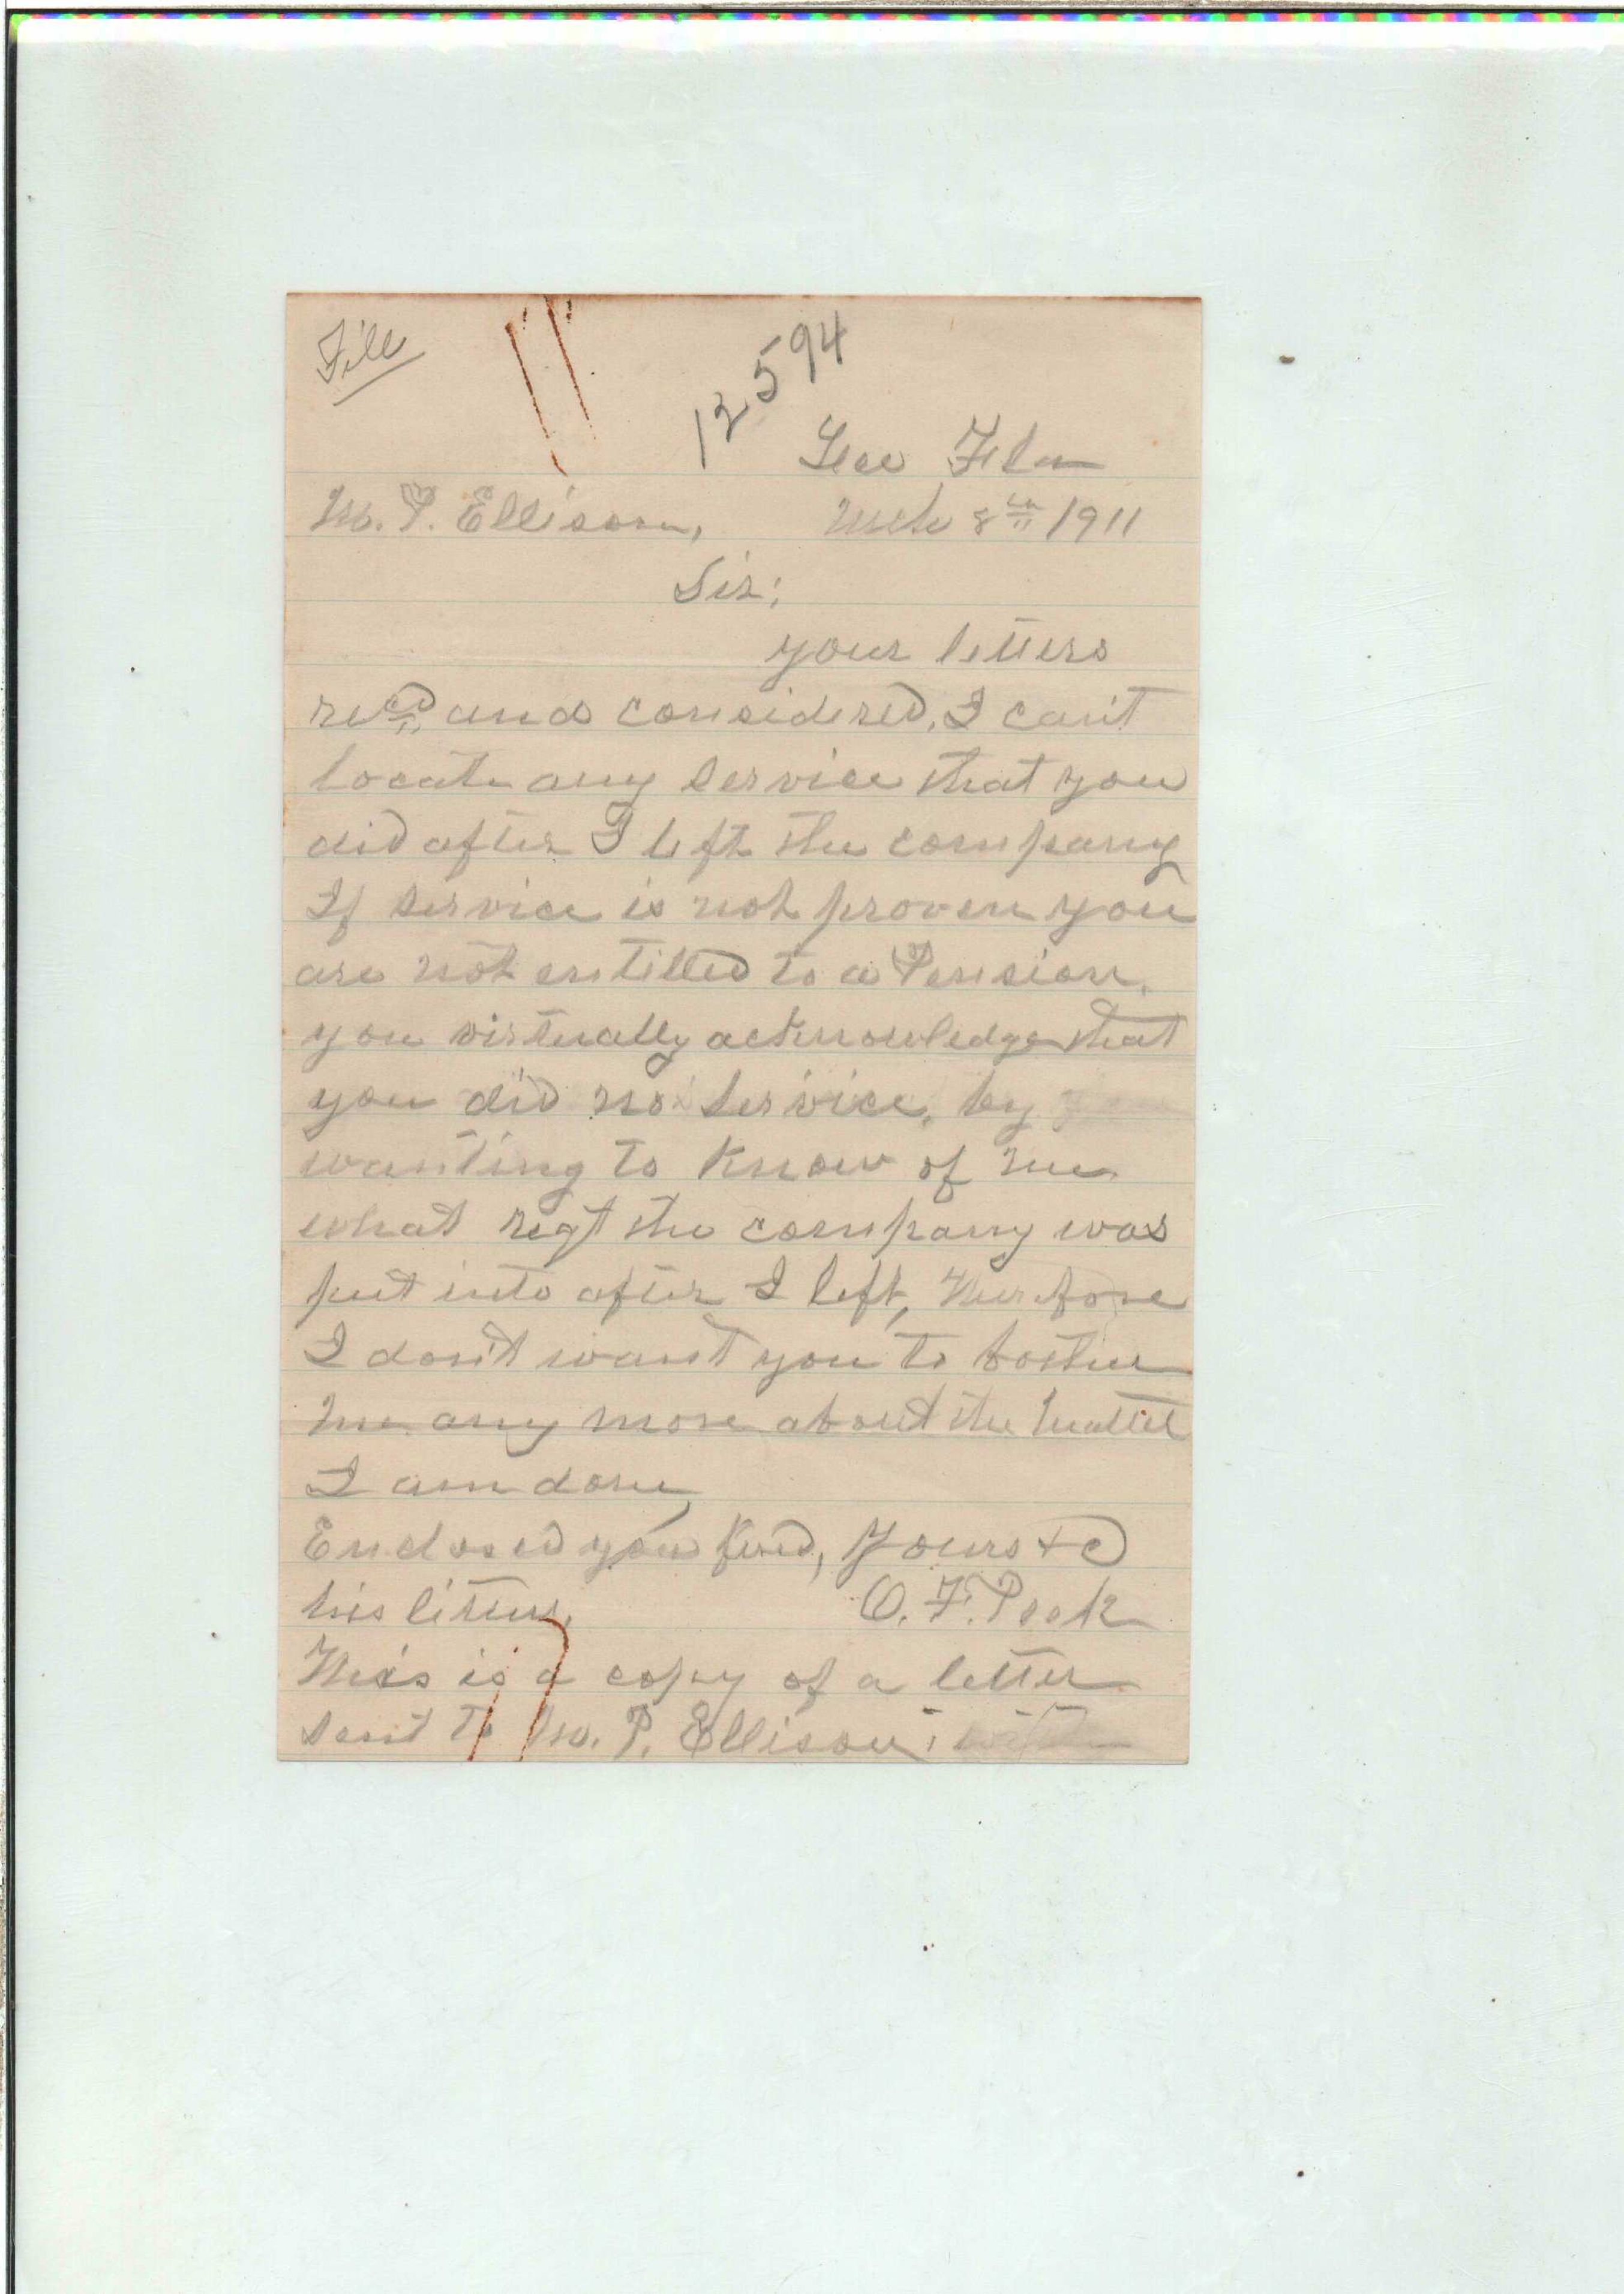 File
12594
Lee Fla
M. P. Ellison, Mch 8th 1911
Sir;
your letters
recd and considered, I can't
locate any service that you
did after I left the company
If service is not proven you
are not entitled to a Pension.
you virtually acknowledge that
you did no service, by
wanting to know of me
what regt the company was
put into after I left, Therefore
I don't want you to bother
me any more about the matter
I am done,
Enclosed you find, Yours &c
his letters, O. F. Peek
This is a copy of a letter
sent to M. P. Ellison,